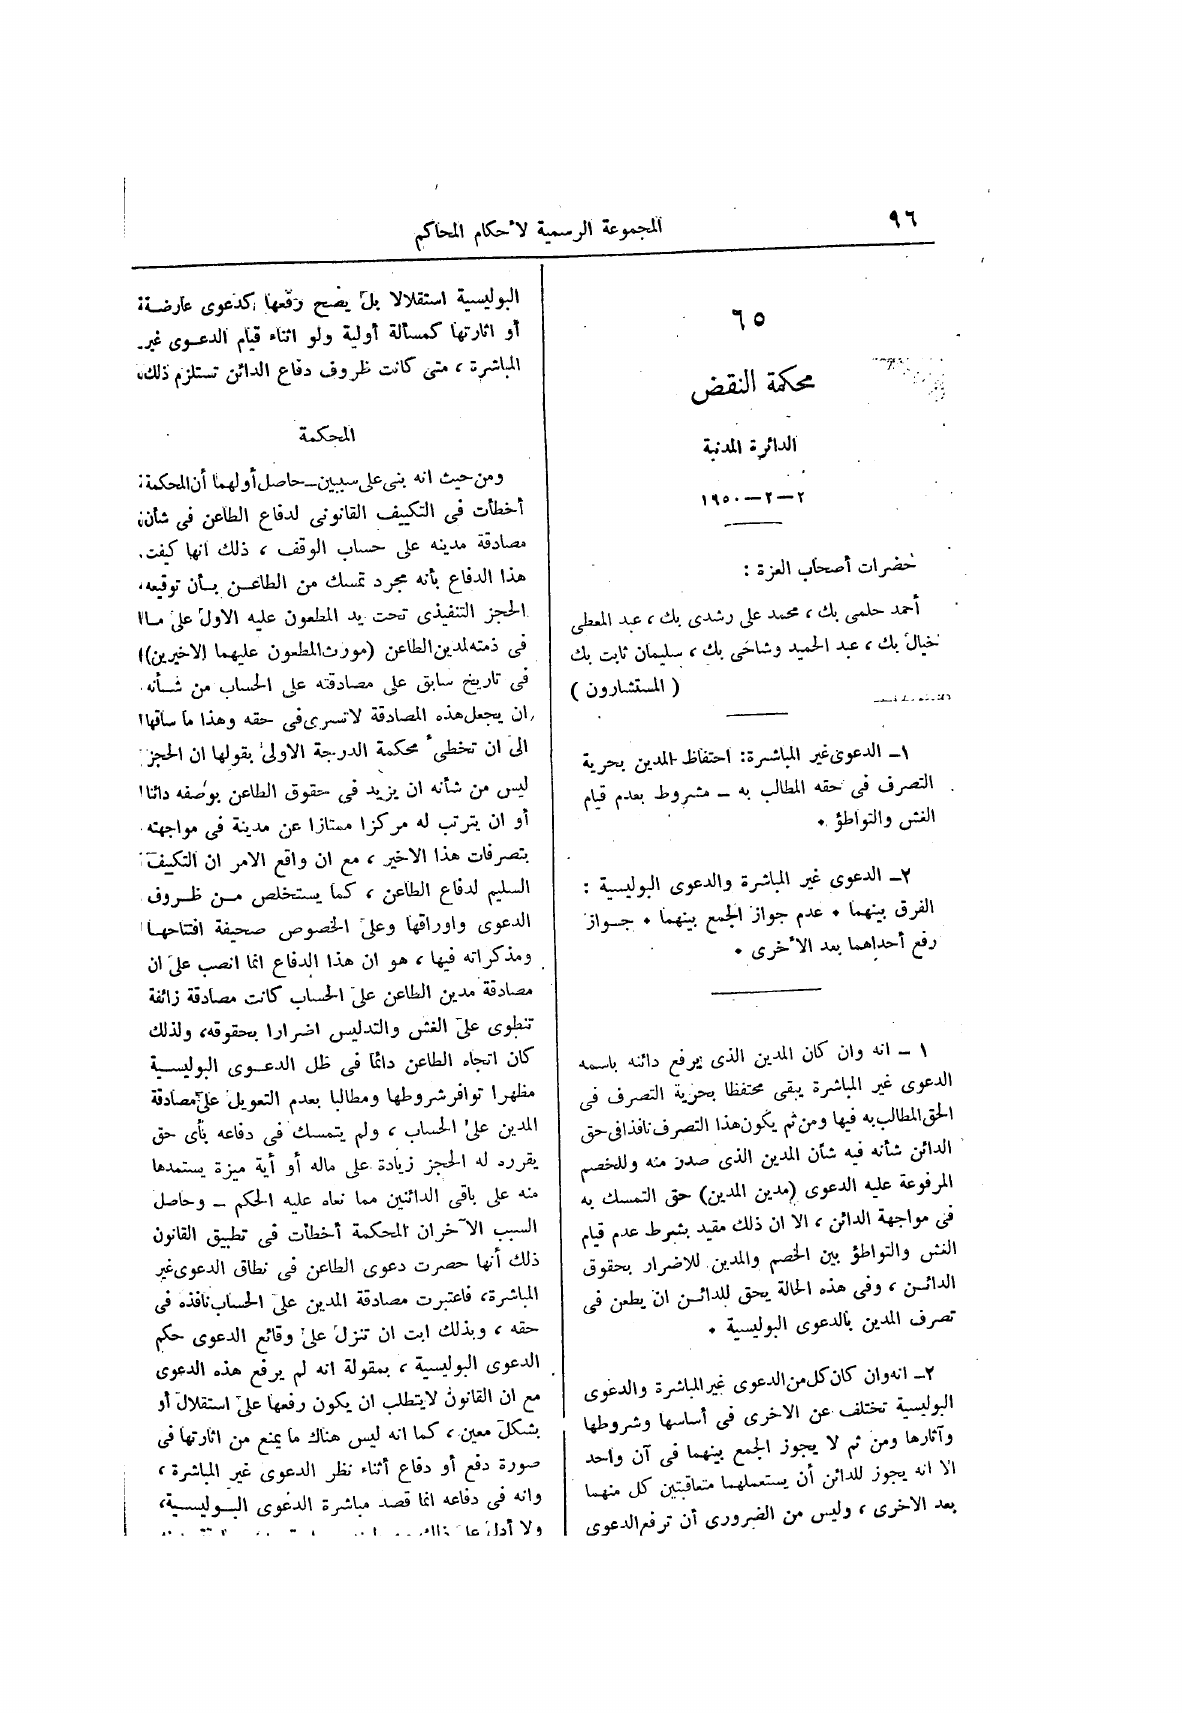 ٩٦
المجموعة الرسمية لأحكام المحاكم
٦٥
محكمة النقض
الدائرة المدنية
٢ – ٢ – ١٩٥٠
حضرات أصحاب العزة :
أحمد حلمى بك ، محمد على رشدى بك ، عبد المعطى
خيال بك ، عبد الحميد وشاحى بك ، سليمان ثابت بك
( المستشارون )
١ـ الدعوى غير المباشرة: احتفاظ المدين بحرية
التصرف فى حقه المطالب به ـ مشروط بعدم قيام
الغش والتواطؤ .
٢ـ الدعوى غير المباشرة والدعوى البوليسية :
الفرق بينهما . عدم جواز الجمع بينهما . جواز
رفع أحداهما بعد الأخرى .
١ ـ انه وان كان المدين الذى يرفع دائنه باسمه
الدعوى غير المباشرة يبقى محتفظا بحرية التصرف فى
الحق المطالب به فيها ومن ثم يكون هذا التصرف نافذا فى حق
الدائن شأنه فيه شأن المدين الذى صدر منه وللخصم
المرفوعة عليه الدعوى (مدين المدين) حق التمسك به
فى مواجهة الدائن ، الا ان ذلك مقيد بشرط عدم قيام
الغش والتواطؤ بين الخصم والمدين للاضرار بحقوق
الدائن ، وفى هذه الحالة يحق للدائن ان يطعن فى
تصرف المدين بالدعوى البوليسية .
٢ـ انه وان كان كل من الدعوى غير المباشرة والدعوى
البوليسية تختلف عن الاخرى فى أساسها وشروطها
وآثارها ومن ثم لا يجوز الجمع بينهما فى آن واحد
الا انه يجوز للدائن أن يستعملهما متعاقبتين كل منهما
بعد الاخرى ، وليس من الضرورى أن ترفع الدعوى
البوليسية استقلالا بل يصح رفعها كدعوى عارضة
أو اثارتها كمسألة أولية ولو اثناء قيام الدعوى غير
المباشرة ، متى كانت ظروف دفاع الدائن تستلزم ذلك
المحكمة
ومن حيث انه بنى على سببين ــ حاصل أولهما أن المحكمة
أخطأت فى التكييف القانونى لدفاع الطاعن فى شأن
مصادقة مدينه على حساب الوقف ، ذلك انها كيفت
هذا الدفاع بأنه مجرد تمسك من الطاعن بأن توقيعه
الحجز التنفيذى تحت يد المطعون عليه الاول على ما
فى ذمته لمدين الطاعن (مورث المطعون عليهما الاخيرين)
فى تاريخ سابق على مصادقته على الحساب من شأنه
ان يجعل هذه المصادقة لا تسرى فى حقه وهذا ما ساقها
الى ان تخطىء محكمة الدرجة الاولى بقولها ان الحجز
ليس من شأنه ان يزيد فى حقوق الطاعن بوصفه دائنا
أو ان يترتب له مركزا ممتازا عن مدينة فى مواجهته
بتصرفات هذا الاخير ، مع ان واقع الامر ان التكييف
السليم لدفاع الطاعن ، كما يستخلص من ظروف
الدعوى واوراقها وعلى الخصوص صحيفة افتتاحها
ومذكراته فيها ، هو ان هذا الدفاع انما انصب على ان
مصادقة مدين الطاعن على الحساب كانت مصادقة زائفة
تنطوى على الغش والتدليس اضرارا بحقوقه، ولذلك
كان اتجاه الطاعن دائما فى ظل الدعوى البوليسية
مظهرا توافر شروطها ومطالبا بعدم التعويل على مصادقة
المدين على الحساب ، ولم يتمسك فى دفاعه بأى حق
يقرره له الحجز زيادة على ماله أو أية ميزة يستمدها
منه على باقى الدائنين مما نعاه عليه الحكم ــ وحاصل
السبب الآخر ان المحكمة أخطأت فى تطبيق القانون
ذلك أنها حصرت دعوى الطاعن فى نطاق الدعوى غير
المباشرة، فاعتبرت مصادقة المدين على الحساب نافذه فى
حقه ، وبذلك ابت ان تنزل على وقائع الدعوى حكم
الدعوى البوليسية ، بمقولة انه لم يرفع هذه الدعوى
مع ان القانون لا يتطلب ان يكون رفعها على استقلال أو
بشكل معين ، كما انه ليس هناك ما يمنع من اثارتها فى
صورة دفع أو دفاع أثناء نظر الدعوى غير المباشرة ،
وانه فى دفاعه انما قصد مباشرة الدعوى البوليسية،
ولا أدل على ذلك